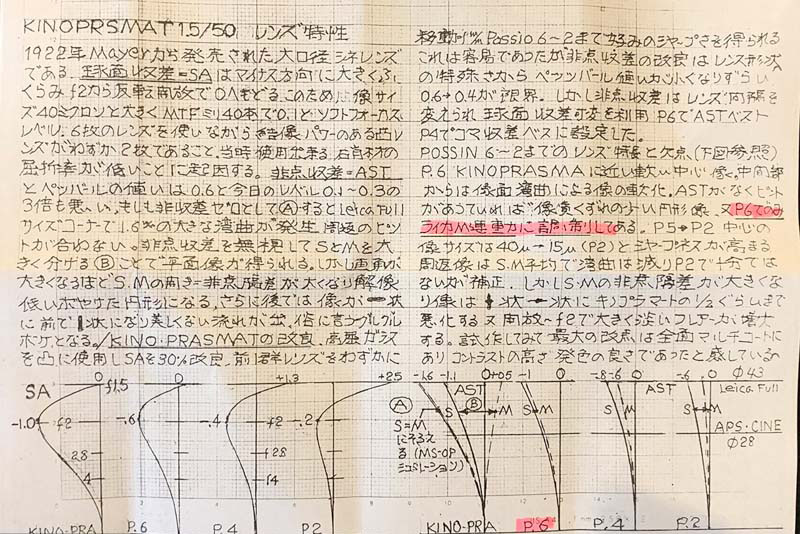 KINOPRSMAT 1.5/50 レンズ特性
1922年 Mayerから発売された大口径シネレンズ
である. 球面収差=SAはマイナス方向に大きくふ
くらみf2から反転開放で0へもどる.このため像サイ
ズ40ミクロンと大きくMTFミリ40本で0.1とソフトフォーカス
レベル. 6枚のレンズを使いながら結像パワーのある凸レ
ンズがわずか2枚であること,当時使用出来る硝材の
屈折率が低いことに起因する. 非点収差=AST
とペッツバールの値いは0.6と今日のレベル0.1~0.3の
3倍も悪い,もしも非収差ゼロとしてⒶするとLeica Full
サイズコーナで1.6%の大きな湾曲が発生 周辺のピン
トが合わない. 非点収差を無視してSとMを大
きく分けるⒷことで平面像が得られる.しかし画角が
大きくなるほどS.Mの開き=非点隔差が大くなり解像
低いボヤけた円形になる,さらに後では像が━状
に前で┃状になり美しくない流れが出,俗に言うグルグル
ボケとなる./KINO-PRASMATの改良,高屈ガラス
を凸に使用しSAを30%改良,前群レンズをわずかに
移動 Possio 6~2まで好みのシャープさを得られる
これは容易であったが非点収差の改良はレンズ形状
の特殊さからペッツバール値いが小くなりずらい
0.6→0.4が限界. しかし非点収差はレンズ間隔を
変えられ 球面収差可変を利用 P6でASTベスト
P4でコマ収差ベスに設定した.
POSSIN 6~2までのレンズ特長と欠点(下図参照)
P.6 KINOPRASMAに近い軟い中心像.中間部
からは像面湾曲による像の軟化. ASTがなくピント
があっていれば像質くずれの少い円形像. 又P6でのみ
ライカM連動力に調節してある. P5→P2 中心の
像サイズは40μ→15μ(P2)とシャープネスが高まる
周辺像はS.M平均で湾曲は減りP2で十分では
ないが補正. しかしSMの非点隔差が大きくな
り像は┃状━状にキノプラマートの1/2ぐらいまで
悪化する 又開放~f2で大きく淡いフレアーが増大
する. 試作してみて最大の改点は全面マルチコートに
ありコントラストの高さ 発色の良さであったと感じている
SA 0 f1.5 0 +1.3 +2.5
-1.0 f2 -.6 -.4 f2 .2
f2.8 f2.8
4 f4
KINO-PRA P.6 P.4 P2
-1.6 -1.1 0 +0.5 -1 0 -.8 -.6 0 -.6 0 φ43
AST AST Leica Full
Ⓐ S Ⓑ M S M S M S M
S=M
にそろえ
る(MS-OP
シュミレーション)
APS・CINE
φ28
KINO-PRA P.6 P.4 P.2